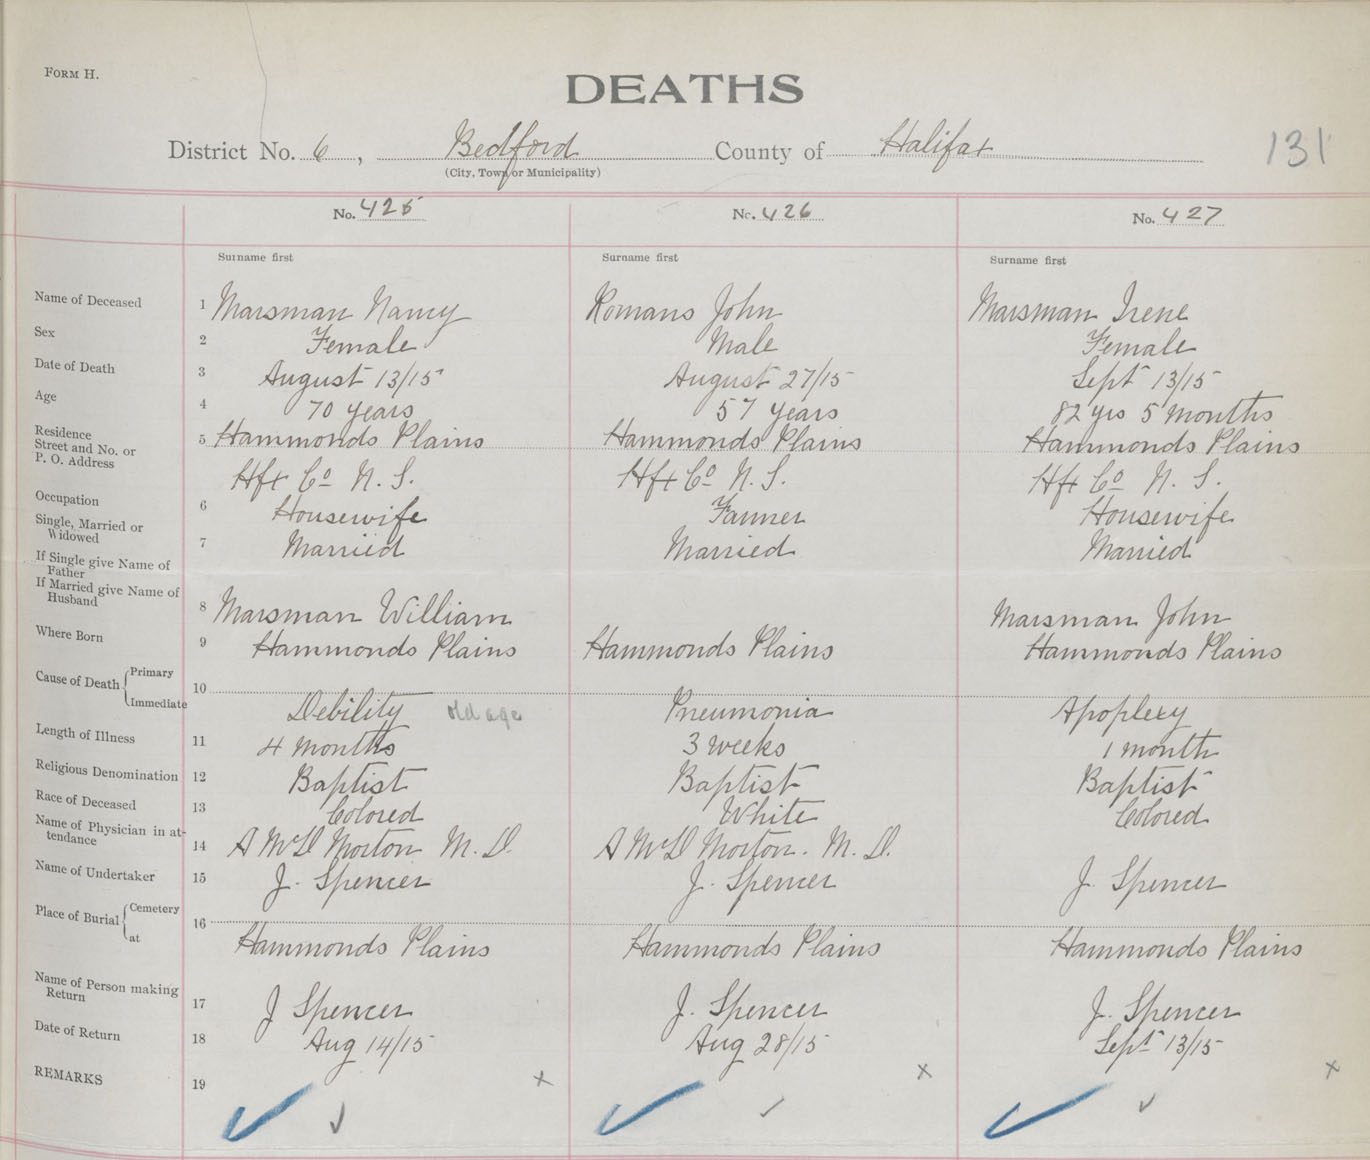 FORM H.
DEATHS
District No. 6, Bedford County of Halifax 131
(City, Town or Municipality)
No. 425 No. 426 No. 427
Surname first Surname first Surname first
Name of Deceased 1 Marsman Nancy Romans John Marsman Irene
Sex 2 Female Male Female
Date of Death 3 August 13/15 August 27/15 Sept 13/15
Age 4 70 years 57 years 82 yrs 5 months
Residence
Street and No. or 5 Hammonds Plains Hammonds Plains Hammonds Plains
P. O. Address Hfx Co N. S. Hfx Co N. S. Hfx Co N. S.
Occupation 6 Housewife Farmer Housewife
Single, Married or
Widowed 7 Married Married Married
If Single give Name of
Father
If Married give Name of
Husband 8 Marsman William Marsman John
Where Born 9 Hammonds Plains Hammonds Plains Hammonds Plains
Cause of Death Primary 10
Immediate Debility old age Pneumonia Apoplexy
Length of Illness 11 4 months 3 weeks 1 month
Religious Denomination 12 Baptist Baptist Baptist
Race of Deceased 13 Colored White Colored
Name of Physician in at-
tendance 14 A McD Morton M. D. A McD Morton. M. D.
Name of Undertaker 15 J. Spencer J. Spencer J. Spencer
Place of Burial Cemetery 16
at Hammonds Plains Hammonds Plains Hammonds Plains
Name of Person making
Return 17 J Spencer J. Spencer J. Spencer
Date of Return 18 Aug 14/15 Aug 28/15 Sept 13/15
REMARKS 19 x x x